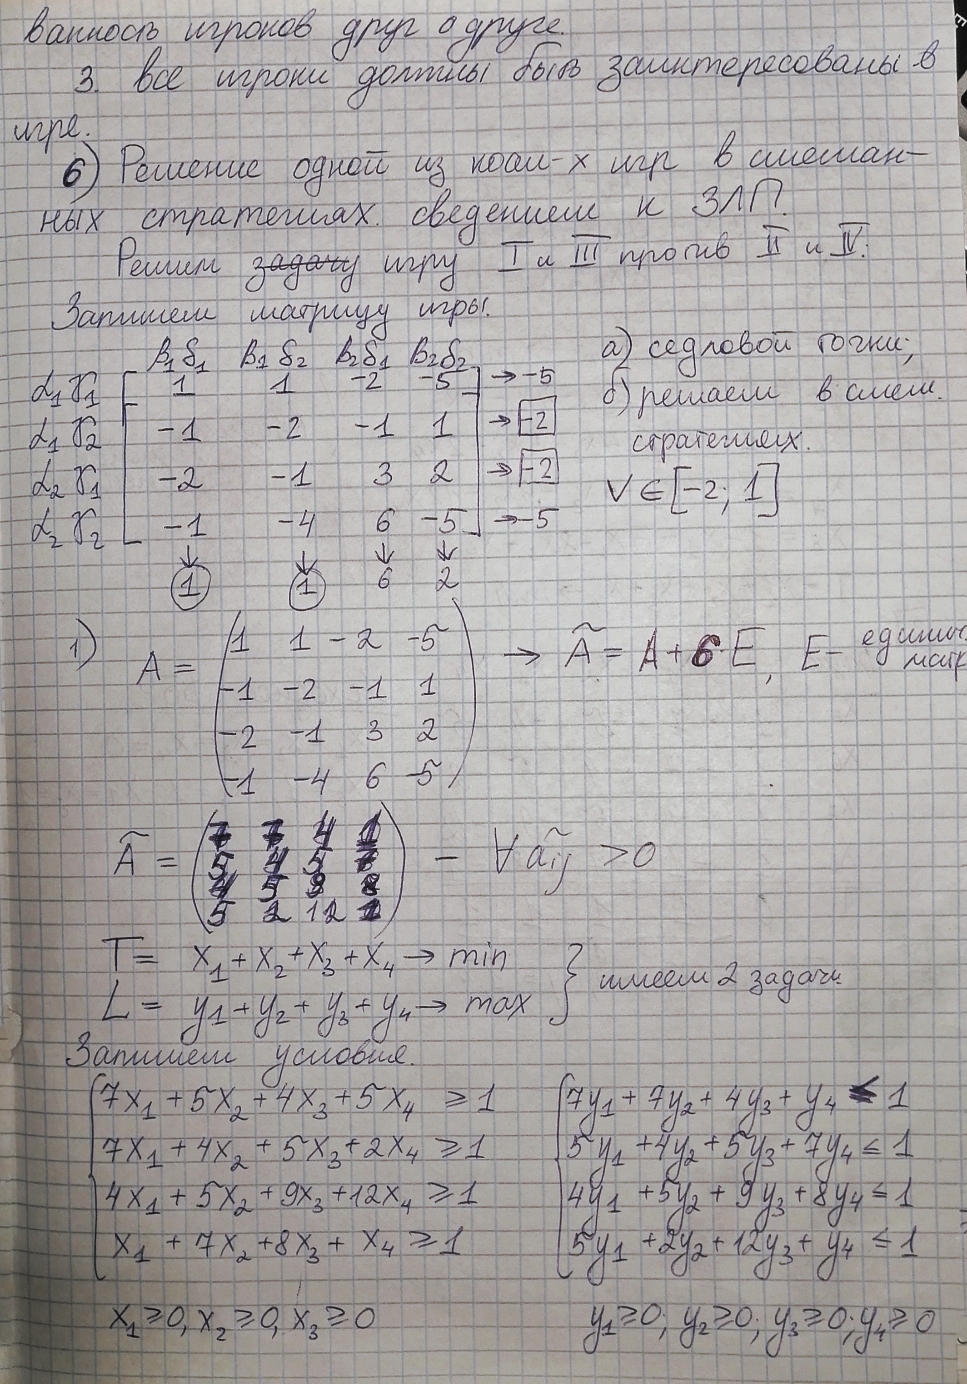 ванность игроков друг о друге.
3. все игроки должны быть заинтересованы в
игре.
6) Решение одной из коал-х игр в смешан-
ных стратегиях. сведением к ЗЛП.
Решим задачу игру I и III против II и IV:
Запишем матрицу игры.
β₁δ₁ β₁δ₂ β₂δ₁ β₂δ₂
α₁γ₁ 1 1 -2 -5 → -5
α₁γ₂ -1 -2 -1 1 → -2
α₂γ₁ -2 -1 3 2 → -2
α₂γ₂ -1 -4 6 -5 → -5
↓ ↓ ↓ ↓
1 1 6 2
а) седловой точки;
б) решаем в смеш.
стратегиях.
V ∈ [-2; 1]
1) A = (1 1 -2 -5
-1 -2 -1 1
-2 -1 3 2
-1 -4 6 -5) → Ã = A + 6·E, E -
Ã = (7 7 4 1
5 4 5 7
4 5 9 8
5 2 12 1) - ∀ ãij > 0
T = x₁ + x₂ + x₃ + x₄ → min
L = y₁ + y₂ + y₃ + y₄ → max } имеем 2 задачи.
Запишем условия.
7x₁ + 5x₂ + 4x₃ + 5x₄ ≥ 1
7x₁ + 4x₂ + 5x₃ + 2x₄ ≥ 1
4x₁ + 5x₂ + 9x₃ + 12x₄ ≥ 1
x₁ + 7x₂ + 8x₃ + x₄ ≥ 1
x₁ ≥ 0, x₂ ≥ 0, x₃ ≥ 0
7y₁ + 7y₂ + 4y₃ + y₄ ≤ 1
5y₁ + 4y₂ + 5y₃ + 7y₄ ≤ 1
4y₁ + 5y₂ + 9y₃ + 8y₄ ≤ 1
5y₁ + 2y₂ + 12y₃ + y₄ ≤ 1
y₁ ≥ 0; y₂ ≥ 0; y₃ ≥ 0; y₄ ≥ 0